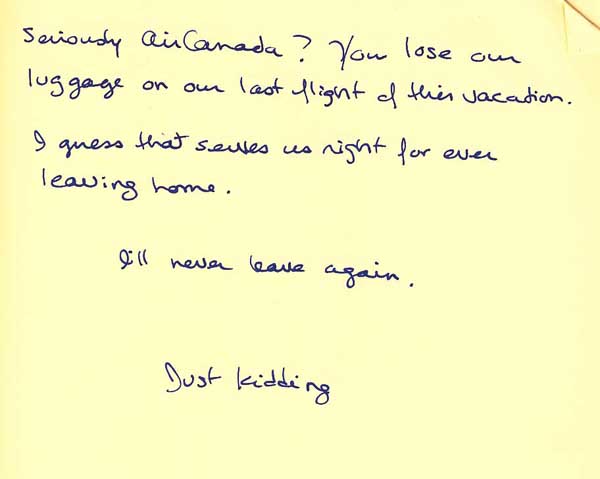 Seriously AirCanada? You lose our
luggage on our last flight of this vacation.
I guess that serves us right for ever
leaving home.
I'll never leave again.
Just kidding